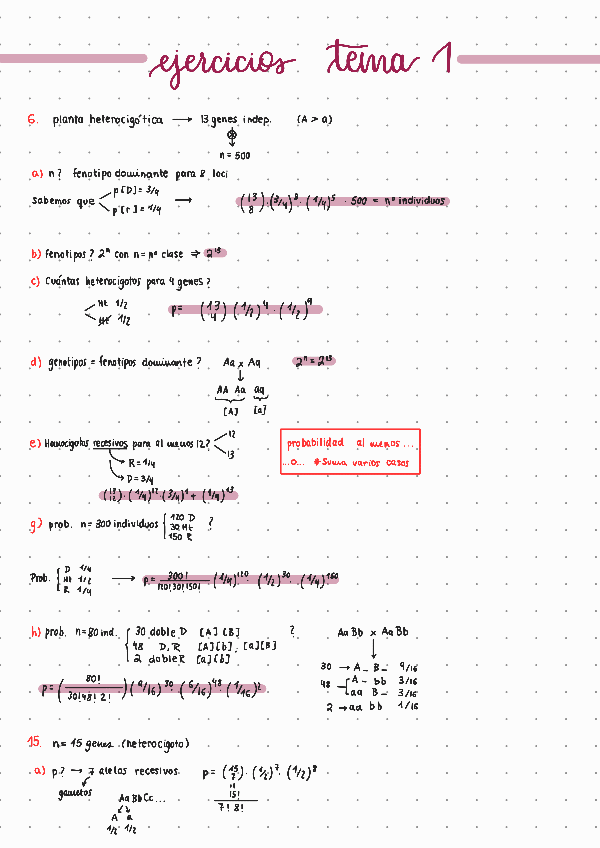 ejercicios tema 1
6. planta heterocigótica → 13 genes indep. (A > a)
n = 500
a) n? fenotipo dominante para 8 loci
sabemos que p[D] = 3/4 → (13 8) · (3/4)^8 · (1/4)^5 · 500 = nº individuos
p[r] = 1/4
b) fenotipos? 2^n con n = nº clase ⇒ 2^13
c) Cuántas heterocigotos para 4 genes?
Ht 1/2
Ht 1/2
p = (13 4) · (1/2)^4 · (1/2)^9
d) genotipos = fenotipos dominante? Aa x Aa 2^n = 2^13
AA Aa aa
[A] [a]
e) Homocigotos recesivos para al menos 12? 12
13
R = 1/4
D = 3/4
(13 12) · (1/4)^12 · (3/4)^1 + (1/4)^13
probabilidad al menos ...
...o... * Suma varios casos
g) prob. n = 300 individuos 120 D ?
30 Ht
150 R
Prob. D 1/4
Ht 1/2
R 1/4
→ p = 300! / 120! 30! 150! · (1/4)^120 · (1/2)^30 · (1/4)^150
h) prob. n = 80 ind. 30 doble D [A][B] ?
48 D,R [A][b], [a][B]
2 doble R [a][b]
p = (80! / 30! 48! 2!) (9/16)^30 · (6/16)^48 · (1/16)^2
AaBb x AaBb
30 → A_ B_ 9/16
48 A_ bb 3/16
aa B_ 3/16
2 → aa bb 1/16
15. n = 15 genes (heterocigoto)
a) p? → 7 alelos recesivos. p = (15 7) · (1/2)^7 · (1/2)^8
gametos
AaBbCc...
A a
1/2 1/2
15!
7! 8!